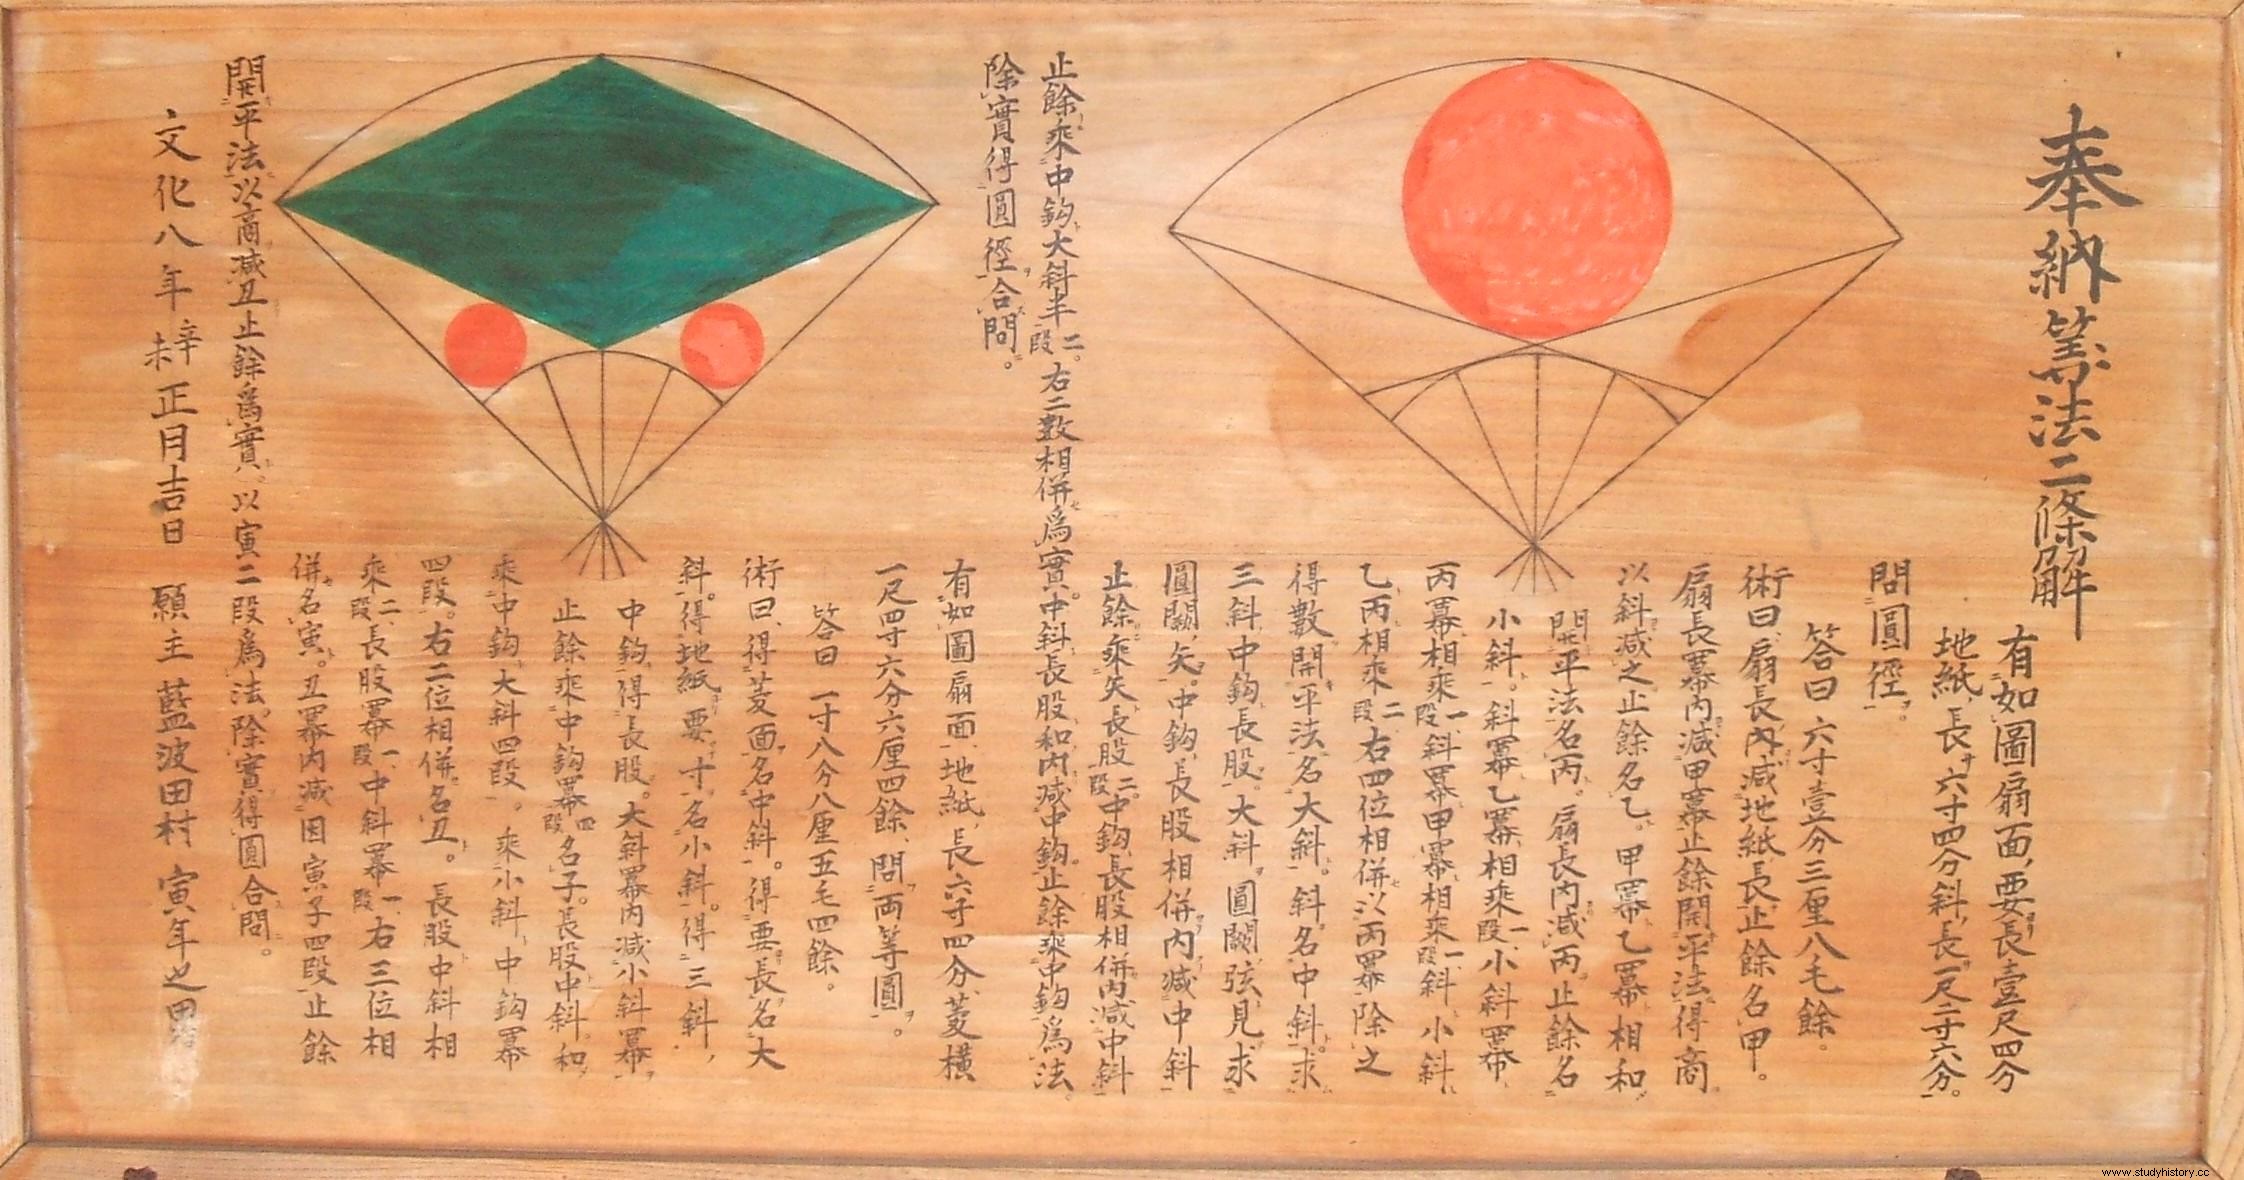 奉納筭法二條解
有如圖扇面、要長壹尺四分
地紙、長六寸四分斜、長一尺二寸六分。
問圓徑。
答曰 六寸壹分三厘八毛餘。
術曰、扇長、内減地紙長、止餘名甲。
扇長冪内減甲冪止餘開平法得商
以斜減之止餘名乙。甲冪、乙冪、相和、
開平法名丙。扇長内減丙。止餘名
小斜。斜冪乙冪相乘一段、小斜冪
丙冪、相乘一段、斜冪甲冪相乘一段、斜、小斜、
乙、丙、相乘二段、右四位相併以丙冪除之
得數開平法名大斜。斜名中斜。求
三斜、中鈎、長股。大斜。圓闕、弦、見求
圓闕、矢。中鈎、長股相併、内減中斜
止餘乘矢長股二段。中鈎、長股相併内減中斜
止餘乘中鈎大斜半二段。右二數相併爲實。中斜長股和内減中鈎止餘乘中鈎爲法。
除實得圓徑合問。
有如圖扇面、地紙、長六寸四分、菱横
一尺四寸六分六厘四餘、問両等圓。
答曰 一寸八分八厘五毛四餘。
術曰、得菱面名中斜。得要長、名大
斜。得地紙、要、寸、名小斜。得三斜、
中鈎、得長股。大斜冪内減小斜冪、
止餘乘中鈎冪四段、名子。長股中斜和、
乘中鈎大斜四段。乘小斜、中鈎冪
四段。右二位相併、名丑。長股中斜相
乘二段、長股冪一段、中斜冪一段、右三位相
併、名寅。丑冪内減因寅子四段止餘
開平法以商減丑止餘爲實。以寅二段爲法。除實得圓合問。
文化八年辛未正月吉日 願主 藍波田村 寅年之男
www.studyhistory.cc